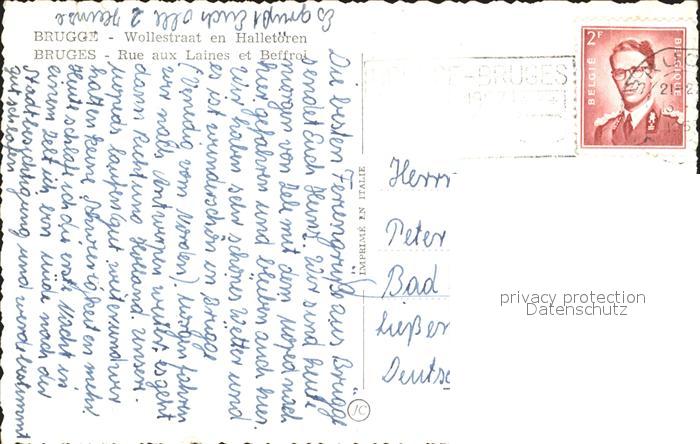 Es grüßt Euch alle 2 Heinz
BRUGGE - Wollestraat en Halletoren
BRUGES - Rue aux Laines et Beffroi
Die besten Feriengrüße aus "Brügge"
sendet Euch Heinz. Wir sind heute
morgen von mit dem Moped nach
hier gefahren und bleiben auch hier.
Wir haben sehr schönes Wetter und
es ist wunderschön in Brügge
(Venedig vom Norden). Morgen fahren
wir nach Antwerpen weiter es geht
dann Richtung Holland. Unsere
Mopeds laufen gut mitersund wir
hatten keine Schwierigkeiten mehr.
Heute schlafe ich die erste Nacht in
einem Zelt ich bin müde nach der
Stadtbesichtigung und werde bestimmt
gut schlafen.
IMPRIMÉ EN ITALIE
BELGIË
2F
BELGIQUE
-BRUGES
Herrn
Peter
Bad
Ließer
Deutsc
privacy protection
Datenschutz